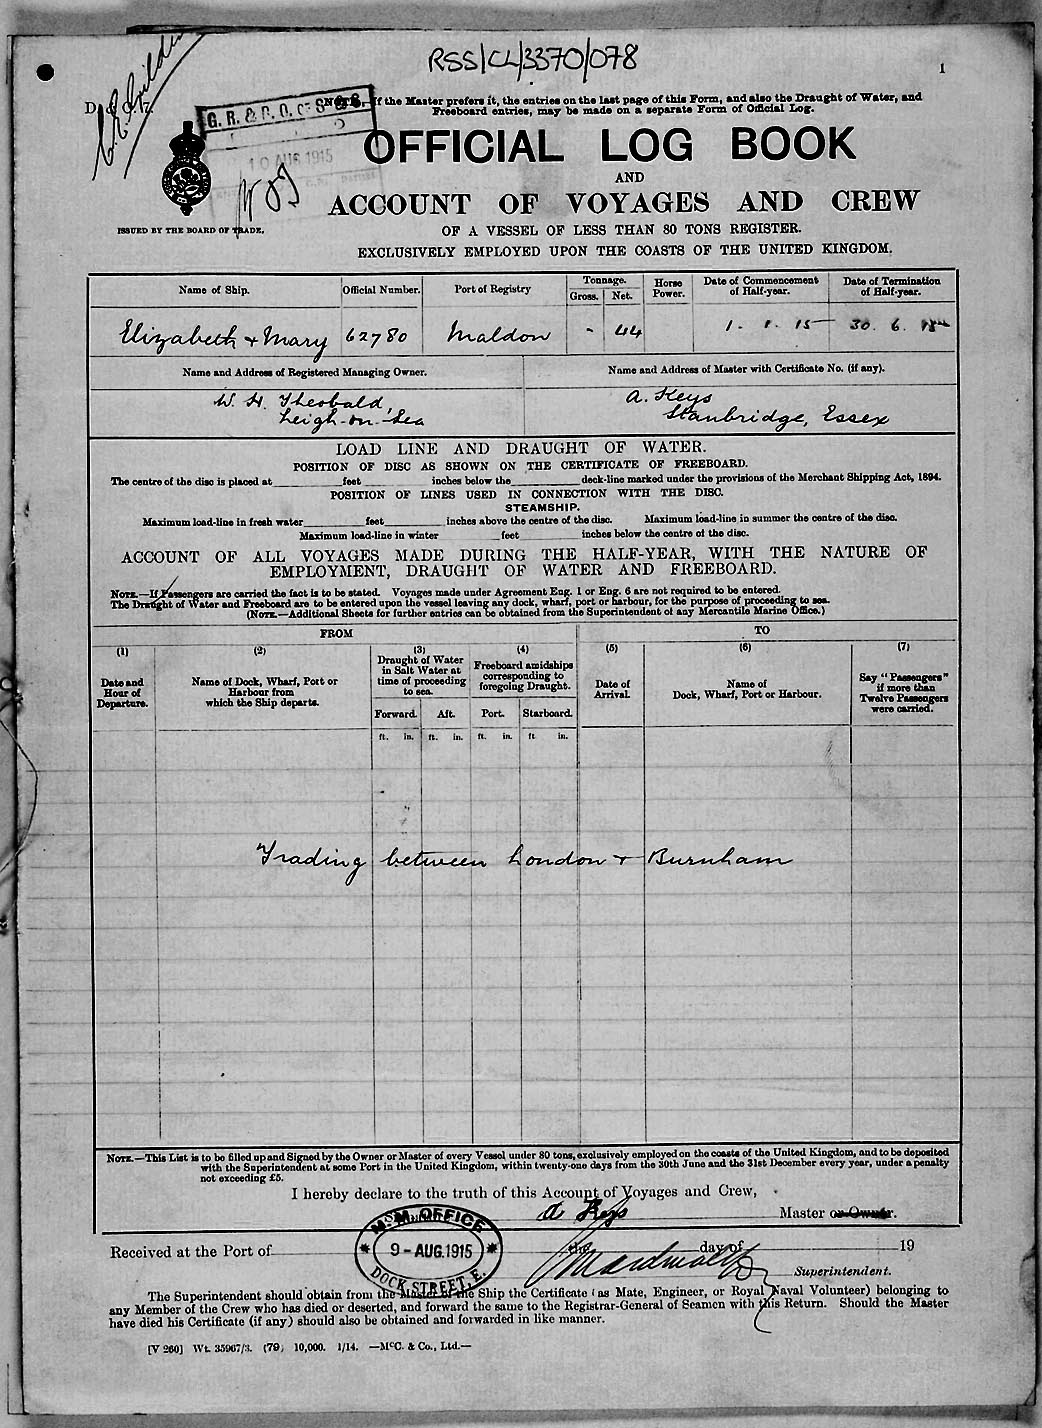 RSS/CL/3370/078
1
NOTE.—If the Master prefers it, the entries on the last page of this Form, and also the Draught of Water, and
Freeboard entries, may be made on a separate Form of Official Log.
G. R. & P. O. of S & S.
10 AUG 1915
OFFICIAL LOG BOOK
AND
ACCOUNT OF VOYAGES AND CREW
ISSUED BY THE BOARD OF TRADE.
OF A VESSEL OF LESS THAN 80 TONS REGISTER.
EXCLUSIVELY EMPLOYED UPON THE COASTS OF THE UNITED KINGDOM.
Name of Ship. Official Number. Port of Registry Tonnage. Gross. Net. Horse Power. Date of Commencement of Half-year. Date of Termination of Half-year.
Elizabeth + Mary 62780 Maldon - 44 1. 1. 15 30. 6. 15
Name and Address of Registered Managing Owner. Name and Address of Master with Certificate No. (if any).
W. H. Theobald, A. Keys
Leigh-on-Sea Stanbridge, Essex
LOAD LINE AND DRAUGHT OF WATER.
POSITION OF DISC AS SHOWN ON THE CERTIFICATE OF FREEBOARD.
The centre of the disc is placed at feet inches below the deck-line marked under the provisions of the Merchant Shipping Act, 1894.
POSITION OF LINES USED IN CONNECTION WITH THE DISC.
STEAMSHIP.
Maximum load-line in fresh water feet inches above the centre of the disc. Maximum load-line in summer the centre of the disc.
Maximum load-line in winter feet inches below the centre of the disc.
ACCOUNT OF ALL VOYAGES MADE DURING THE HALF-YEAR, WITH THE NATURE OF
EMPLOYMENT, DRAUGHT OF WATER AND FREEBOARD.
NOTE.—If Passengers are carried the fact is to be stated. Voyages made under Agreement Eng. 1 or Eng. 6 are not required to be entered.
The Draught of Water and Freeboard are to be entered upon the vessel leaving any dock, wharf, port or harbour, for the purpose of proceeding to sea.
(NOTE.—Additional Sheets for further entries can be obtained from the Superintendent of any Mercantile Marine Office.)
FROM TO
(1) (2) (3) (4) (5) (6) (7)
Date and Hour of Departure. Name of Dock, Wharf, Port or Harbour from which the Ship departs. Draught of Water in Salt Water at time of proceeding to sea. Freeboard amidships corresponding to foregoing Draught. Date of Arrival. Name of Dock, Wharf, Port or Harbour. Say "Passengers" if more than Twelve Passengers were carried.
Forward. Aft. Port. Starboard.
ft. in. ft. in. ft. in. ft in.
Trading between London + Burnham
NOTE.—This List is to be filled up and Signed by the Owner or Master of every Vessel under 80 tons, exclusively employed on the coasts of the United Kingdom, and to be deposited
with the Superintendent at some Port in the United Kingdom, within twenty-one days from the 30th June and the 31st December every year, under a penalty
not exceeding £5.
I hereby declare to the truth of this Account of Voyages and Crew,
A Keys Master or Owner.
M. M. OFFICE
9 - AUG. 1915
DOCK STREET, E.
Received at the Port of the day of 19
Superintendent.
The Superintendent should obtain from the Master of the Ship the Certificate (as Mate, Engineer, or Royal Naval Volunteer) belonging to
any Member of the Crew who has died or deserted, and forward the same to the Registrar-General of Seamen with this Return. Should the Master
have died his Certificate (if any) should also be obtained and forwarded in like manner.
[V 260] Wt. 35967/3. (79) 10,000. 1/14. —McC. & Co., Ltd.—